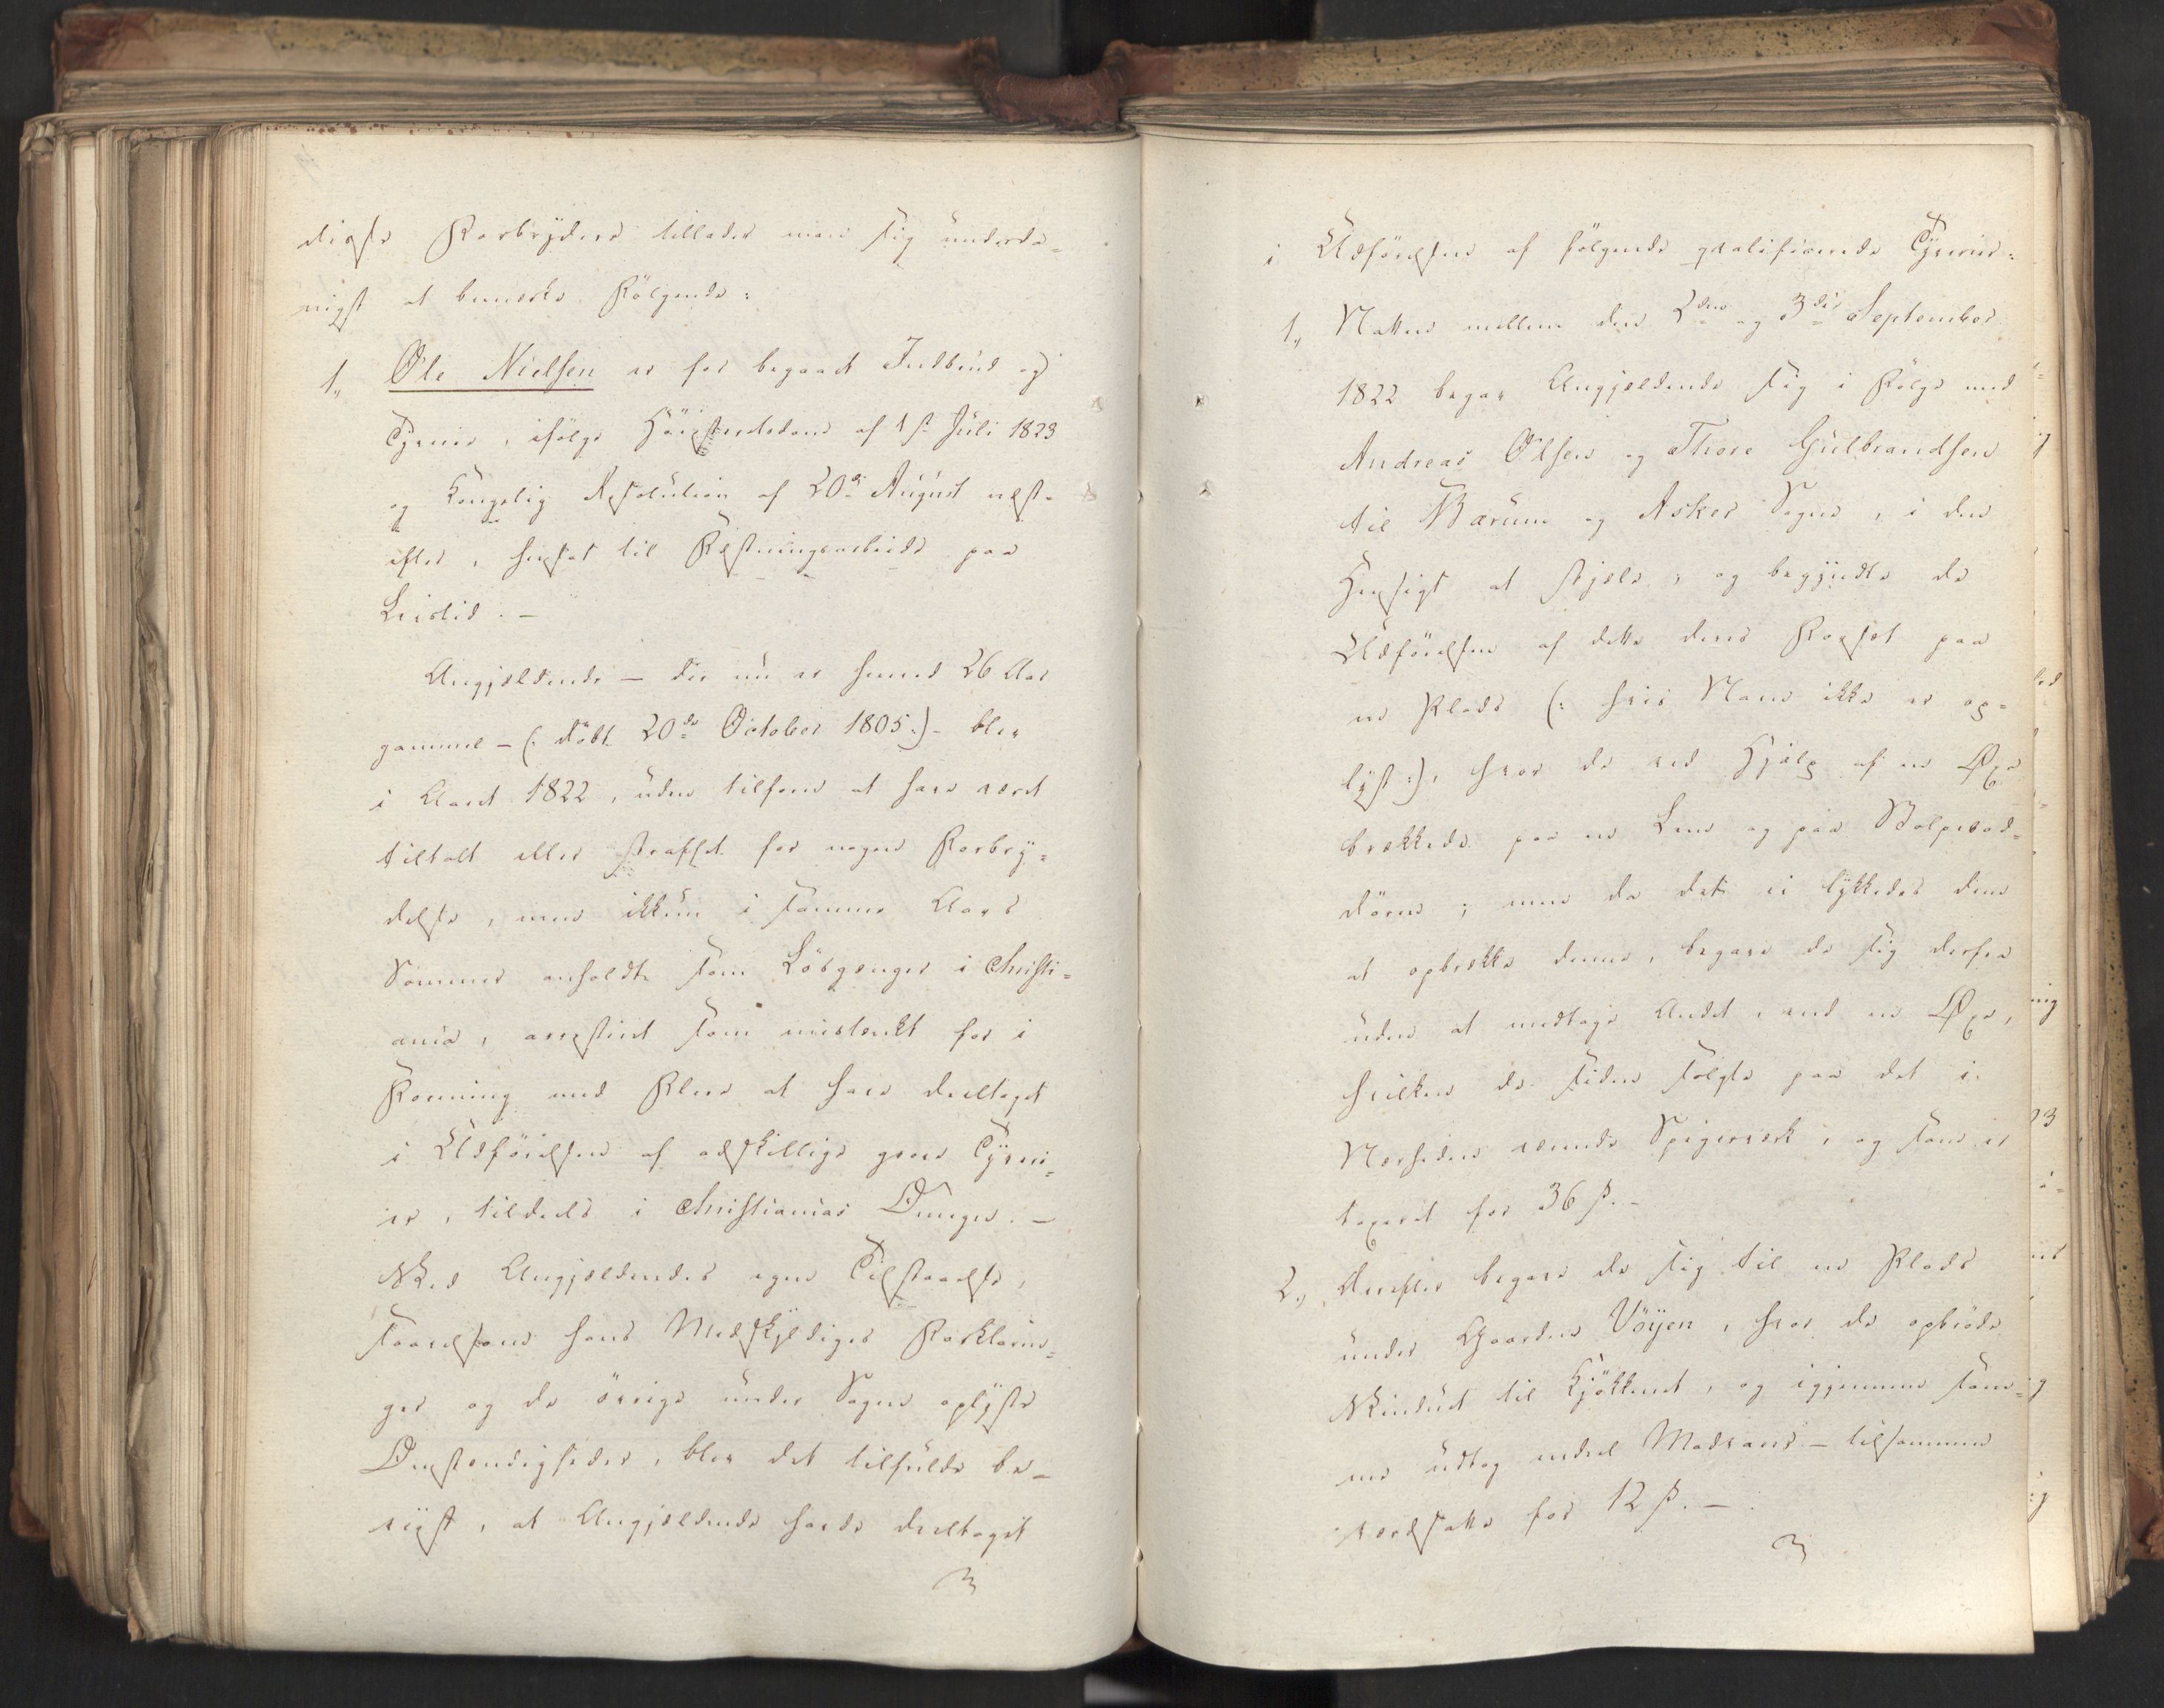 disse Forbrydere tillader man sig underda=
nigst at bemærke Følgende:
1., Ole Nielsen er for begaaet Indbrud og
Tyverie, ifølge Höiesteretsdom af 1ste Juli 1823
og Kongelig Resolution af 20de August næst-
efter, hensat til Fæstningsarbeide paa
Livstid. —
Angjældende — der nu er henved 26 Aar
gammel — (: döbt 20de October 1805:) — blev
i Aaret 1822, uden tilforn at have været
tiltalt eller straffet for nogen Forbry=
delse, men ikkun i samme Aars
Sommer anholdt som Lösgænger i Christi=
ania, arresteret som mistænkt for i
Forening med Flere at have deeltaget
i Udförelsen af adskillige grove Tyveri=
er, tildeels i Christianias Omegn. —
Ved Angjældendes egen Tilstaaelse,
saavelsom hans Medskyldiges Forklarin=
ger og de övrige under Sagen oplyste
Omstændigheder, blev det tilfulde be-
viist, at Angjældende havde deeltaget
i Udförelsen af fölgende qvalificerede Tyverier:
1., Natten mellem den 2den og 3die September
1822 begav Angjældende sig i Fölge med
Andreas Olsen og Thore Gulbrandsen
til Bærums og Asker Sogne, i den
Hensigt at stjæle, og begyndte de
Udförelsen af dette deres Forsæt paa
en Plads (: hvis Navn ikke er op=
lyst:), hvor de ved Hjælp af en Öxe
brækkede paa en Laas og paa Stolpebod=
dören; men da det ei lykkedes dem
at opbrække denne, begave de sig derfra
uden at medtage Andet, end en Öxe,
hvilken de siden solgte paa det i
Nærheden værende Spigerværk, og som er
taxeret for 36 ß. —
2., Derefter begave de sig til en Plads
under Gaarden Vöyen, hvor de opbröde
Vinduet til Kjökkenet, og igjennem sam=
me udtog endeel Madvarer — tilsammen
værdsatte for 12 ß. —